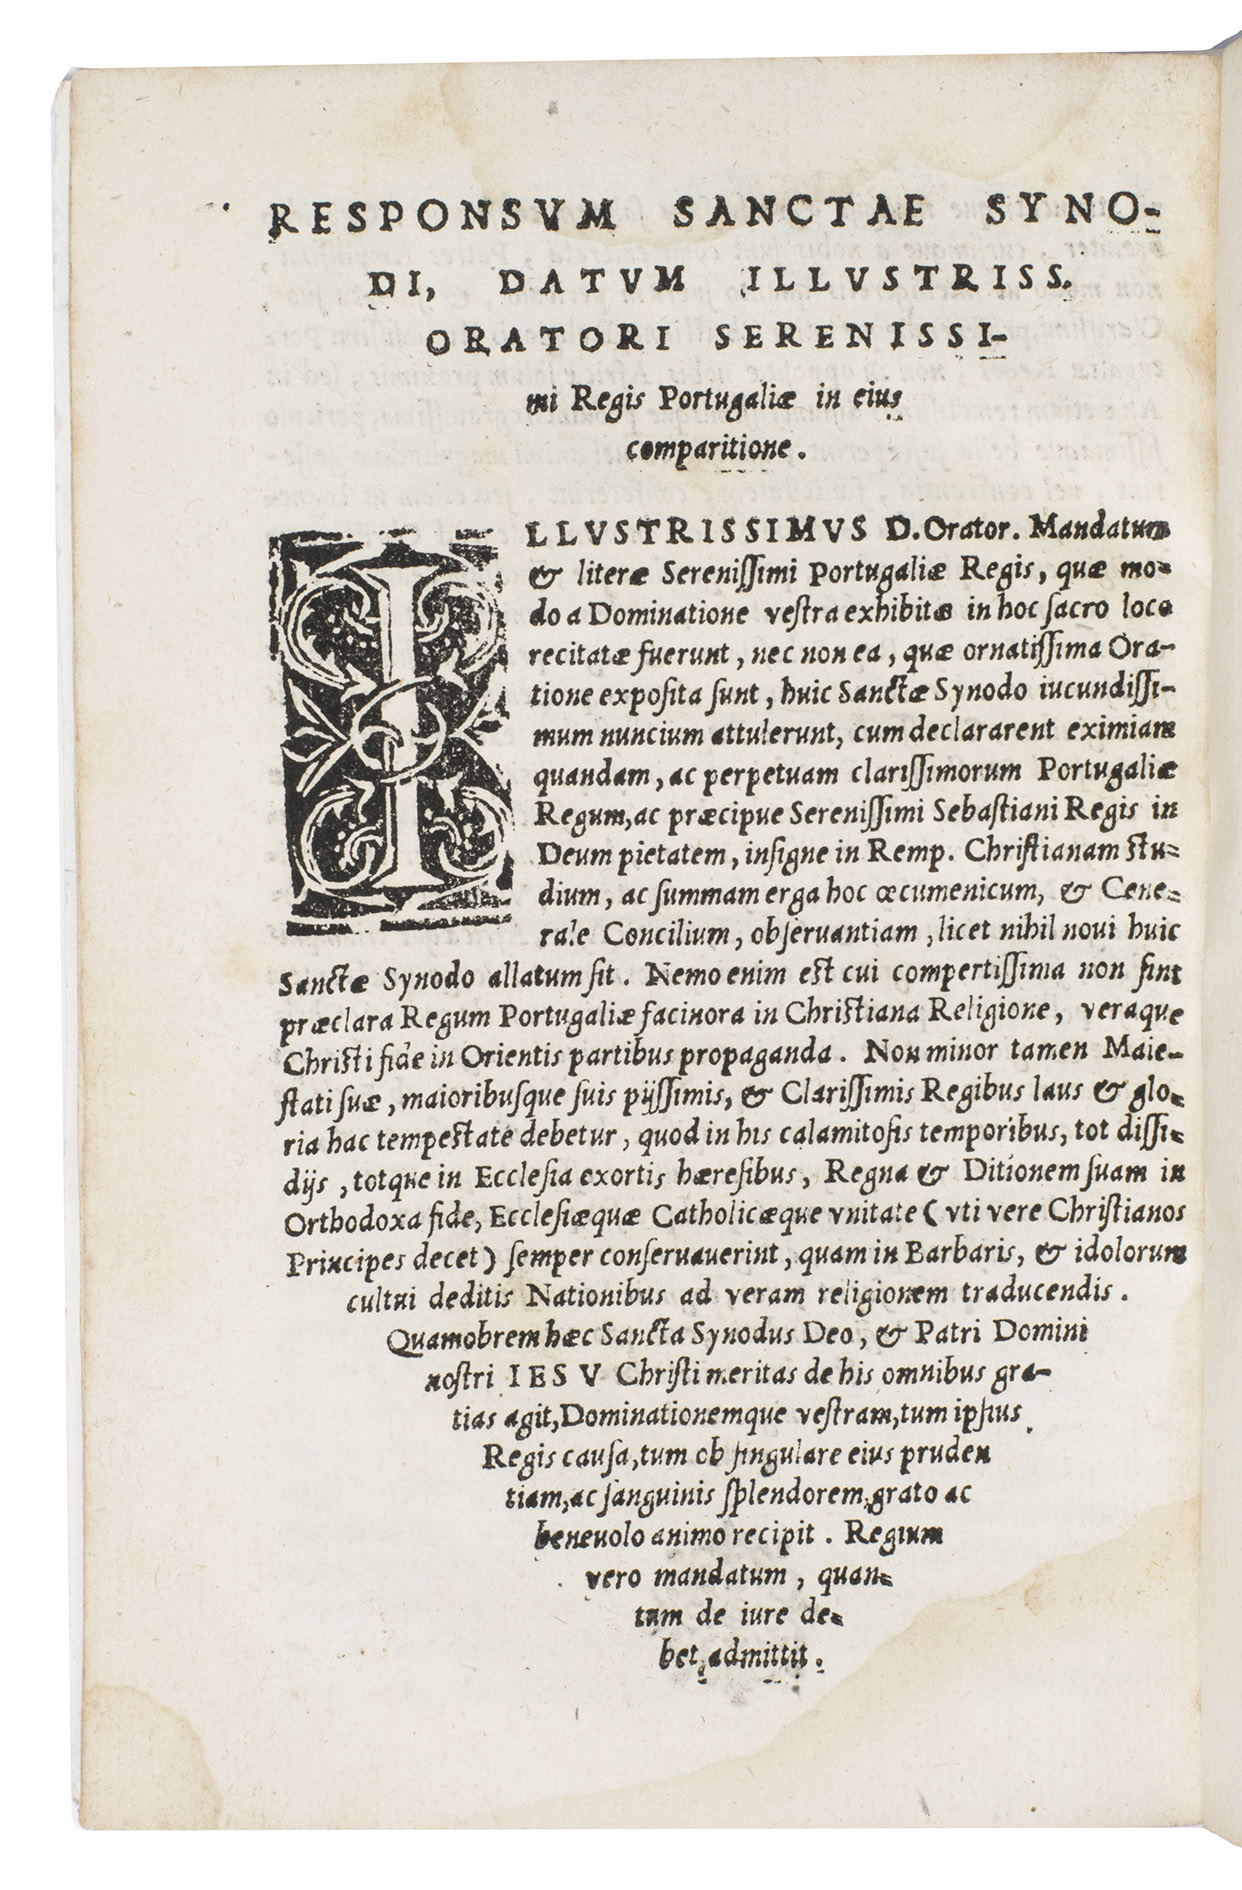 RESPONSVM SANCTAE SYNO-
DI, DATVM ILLVSTRISS.
ORATORI SERENISSI-
mi Regis Portugaliæ in eius
comparitione.
ILLVSTRISSIMVS D. Orator. Mandatum
& literæ Sereniſſimi Portugaliæ Regis, quæ mo-
do a Dominatione veſtra exhibitæ in hoc ſacro loco
recitatæ fuerunt, nec non ea, quæ ornatiſſima Ora-
tione expoſita ſunt, huic Sanctæ Synodo iucundiſſi-
mum nuncium attulerunt, cum declararent eximiam
quandam, ac perpetuam clariſſimorum Portugaliæ
Regum, ac præcipue Sereniſſimi Sebaſtiani Regis in
Deum pietatem, inſigne in Remp. Chriſtianam ſtu-
dium, ac ſummam erga hoc œcumenicum, & Cene-
rale Concilium, obſeruantiam, licet nihil noui huic
Sanctæ Synodo allatum ſit. Nemo enim eſt cui compertiſſima non ſint
præclara Regum Portugaliæ facinora in Chriſtiana Religione, veraque
Chriſti fide in Orientis partibus propaganda. Non minor tamen Maie-
ſtati ſuæ, maioribuſque ſuis pijſſimis, & Clariſſimis Regibus laus & glo-
ria hac tempeſtate debetur, quod in his calamitoſis temporibus, tot diſſi-
dijs, totque in Eccleſia exortis hæreſibus, Regna & Ditionem ſuam in
Orthodoxa fide, Eccleſiæquæ Catholicæque vnitate (vti vere Chriſtianos
Principes decet) ſemper conſeruauerint, quam in Barbaris, & idolorum
cultui deditis Nationibus ad veram religionem traducendis.
Quamobrem hæc Sancta Synodus Deo, & Patri Domini
noſtri IESV Chriſti meritas de his omnibus gra-
tias agit, Dominationemque veſtram, tum ipſius
Regis cauſa, tum ob ſingulare eius pruden
tiam, ac ſanguinis ſplendorem, grato ac
beneuolo animo recipit. Regium
vero mandatum, quan-
tum de iure de-
bet, admittit.